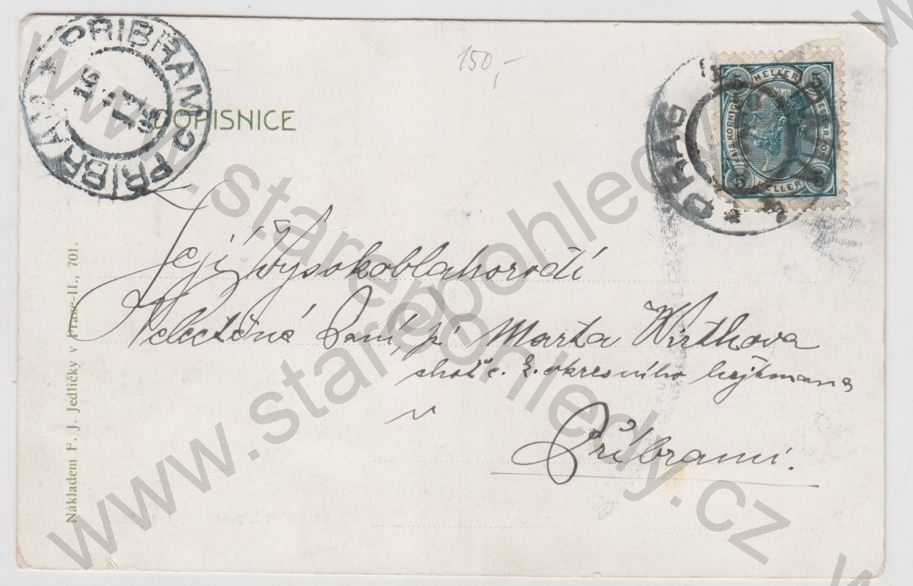 PŘIBRAM 2 PŘIBRAM
150,-
DOPISNICE
PRAG
HELLER
5 5
5 5
HELLER
Její Vysokoblahorodí
Velectěná Paní, pí Marta Wirthova
choť c. k. okresního hejtmana
v
Příbrami.
Nákladem F. J. Jedličky v Praze-II., 701.
www.starepohledy.cz
www.starepohledy.cz